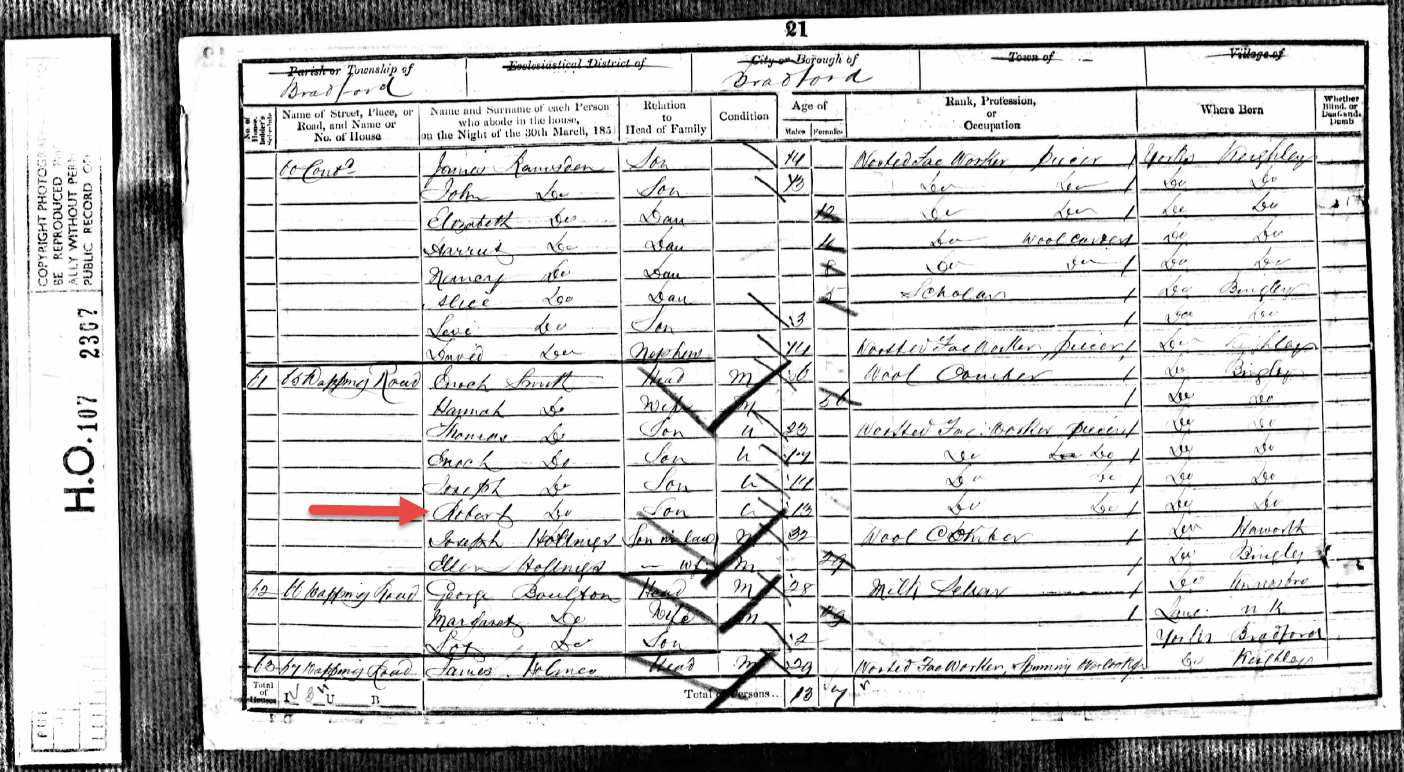 21
Parish or Township of Ecclesiastical District of City or Borough of Town of Village of
Bradford Bradford
No. of House-holder's Schedule Name of Street, Place, or Road, and Name or No. of House Name and Surname of each Person who abode in the house, on the Night of the 30th March, 185 Relation to Head of Family Condition Age of Males Females Rank, Profession, or Occupation Where Born Whether Blind, or Deaf-and-Dumb
60 Contd James Ramsden Son 14 Worsted Fac Worker piecer Yorks Keighley
John Do Son 13 Do Do Do Do
Elizabeth Do Dau 12 Do Do Do Do
Harriet Do Dau 11 Do Do Do
Nancy Do Dau 8 Do Do Do Do
Alice Do Dau 5 Scholar Do Bingley
Levi Do Son 3 Do Do
David Do Nephew 14 Worsted Fac Worker, piecer Do Keighley
61 65 Wapping Road Enoch Smith Head M 56 Wool Comber Do Bingley
Hannah Do Wife M 56 Do Do
Thomas Do Son U 23 Worsted Fac. Worker piecer Do Do
Enoch Do Son U 17 Do Do Do Do
Joseph Do Son U 14 Do Do Do Do
Robert Do Son U 13 Do Do Do Do
Joseph Son in law M 32 Wool Comber Do Haworth
Ellen M 29 Do Bingley
62 66 Wapping Road George Boulton Head M 28 Milk Do
Margaret Do Wife M 29 n k
Do Son 2 Yorks Bradford
63 67 Wapping Road James Holmes Head M 29 Worsted Fac Worker, Spinning Overlooker Do Keighley
Total of Houses I U B Total of Persons.. 13
COPYRIGHT PHOTOGRA
BE REPRODUCED
ALLY WITHOUT PER
PUBLIC RECORD O
H.O. 107 2307